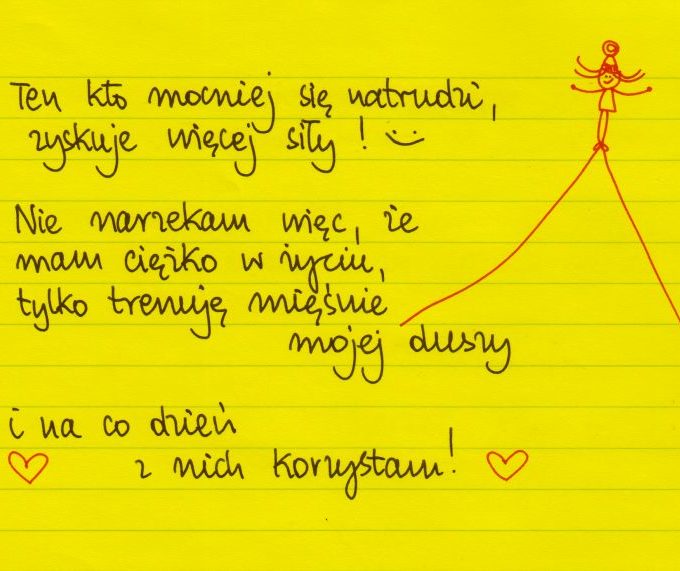 Ten kto mocniej się natrudzi,
zyskuje więcej siły!
Nie narzekam więc, że
mam ciężko w życiu,
tylko trenuję mięśnie
mojej duszy
i na co dzień
z nich korzystam!